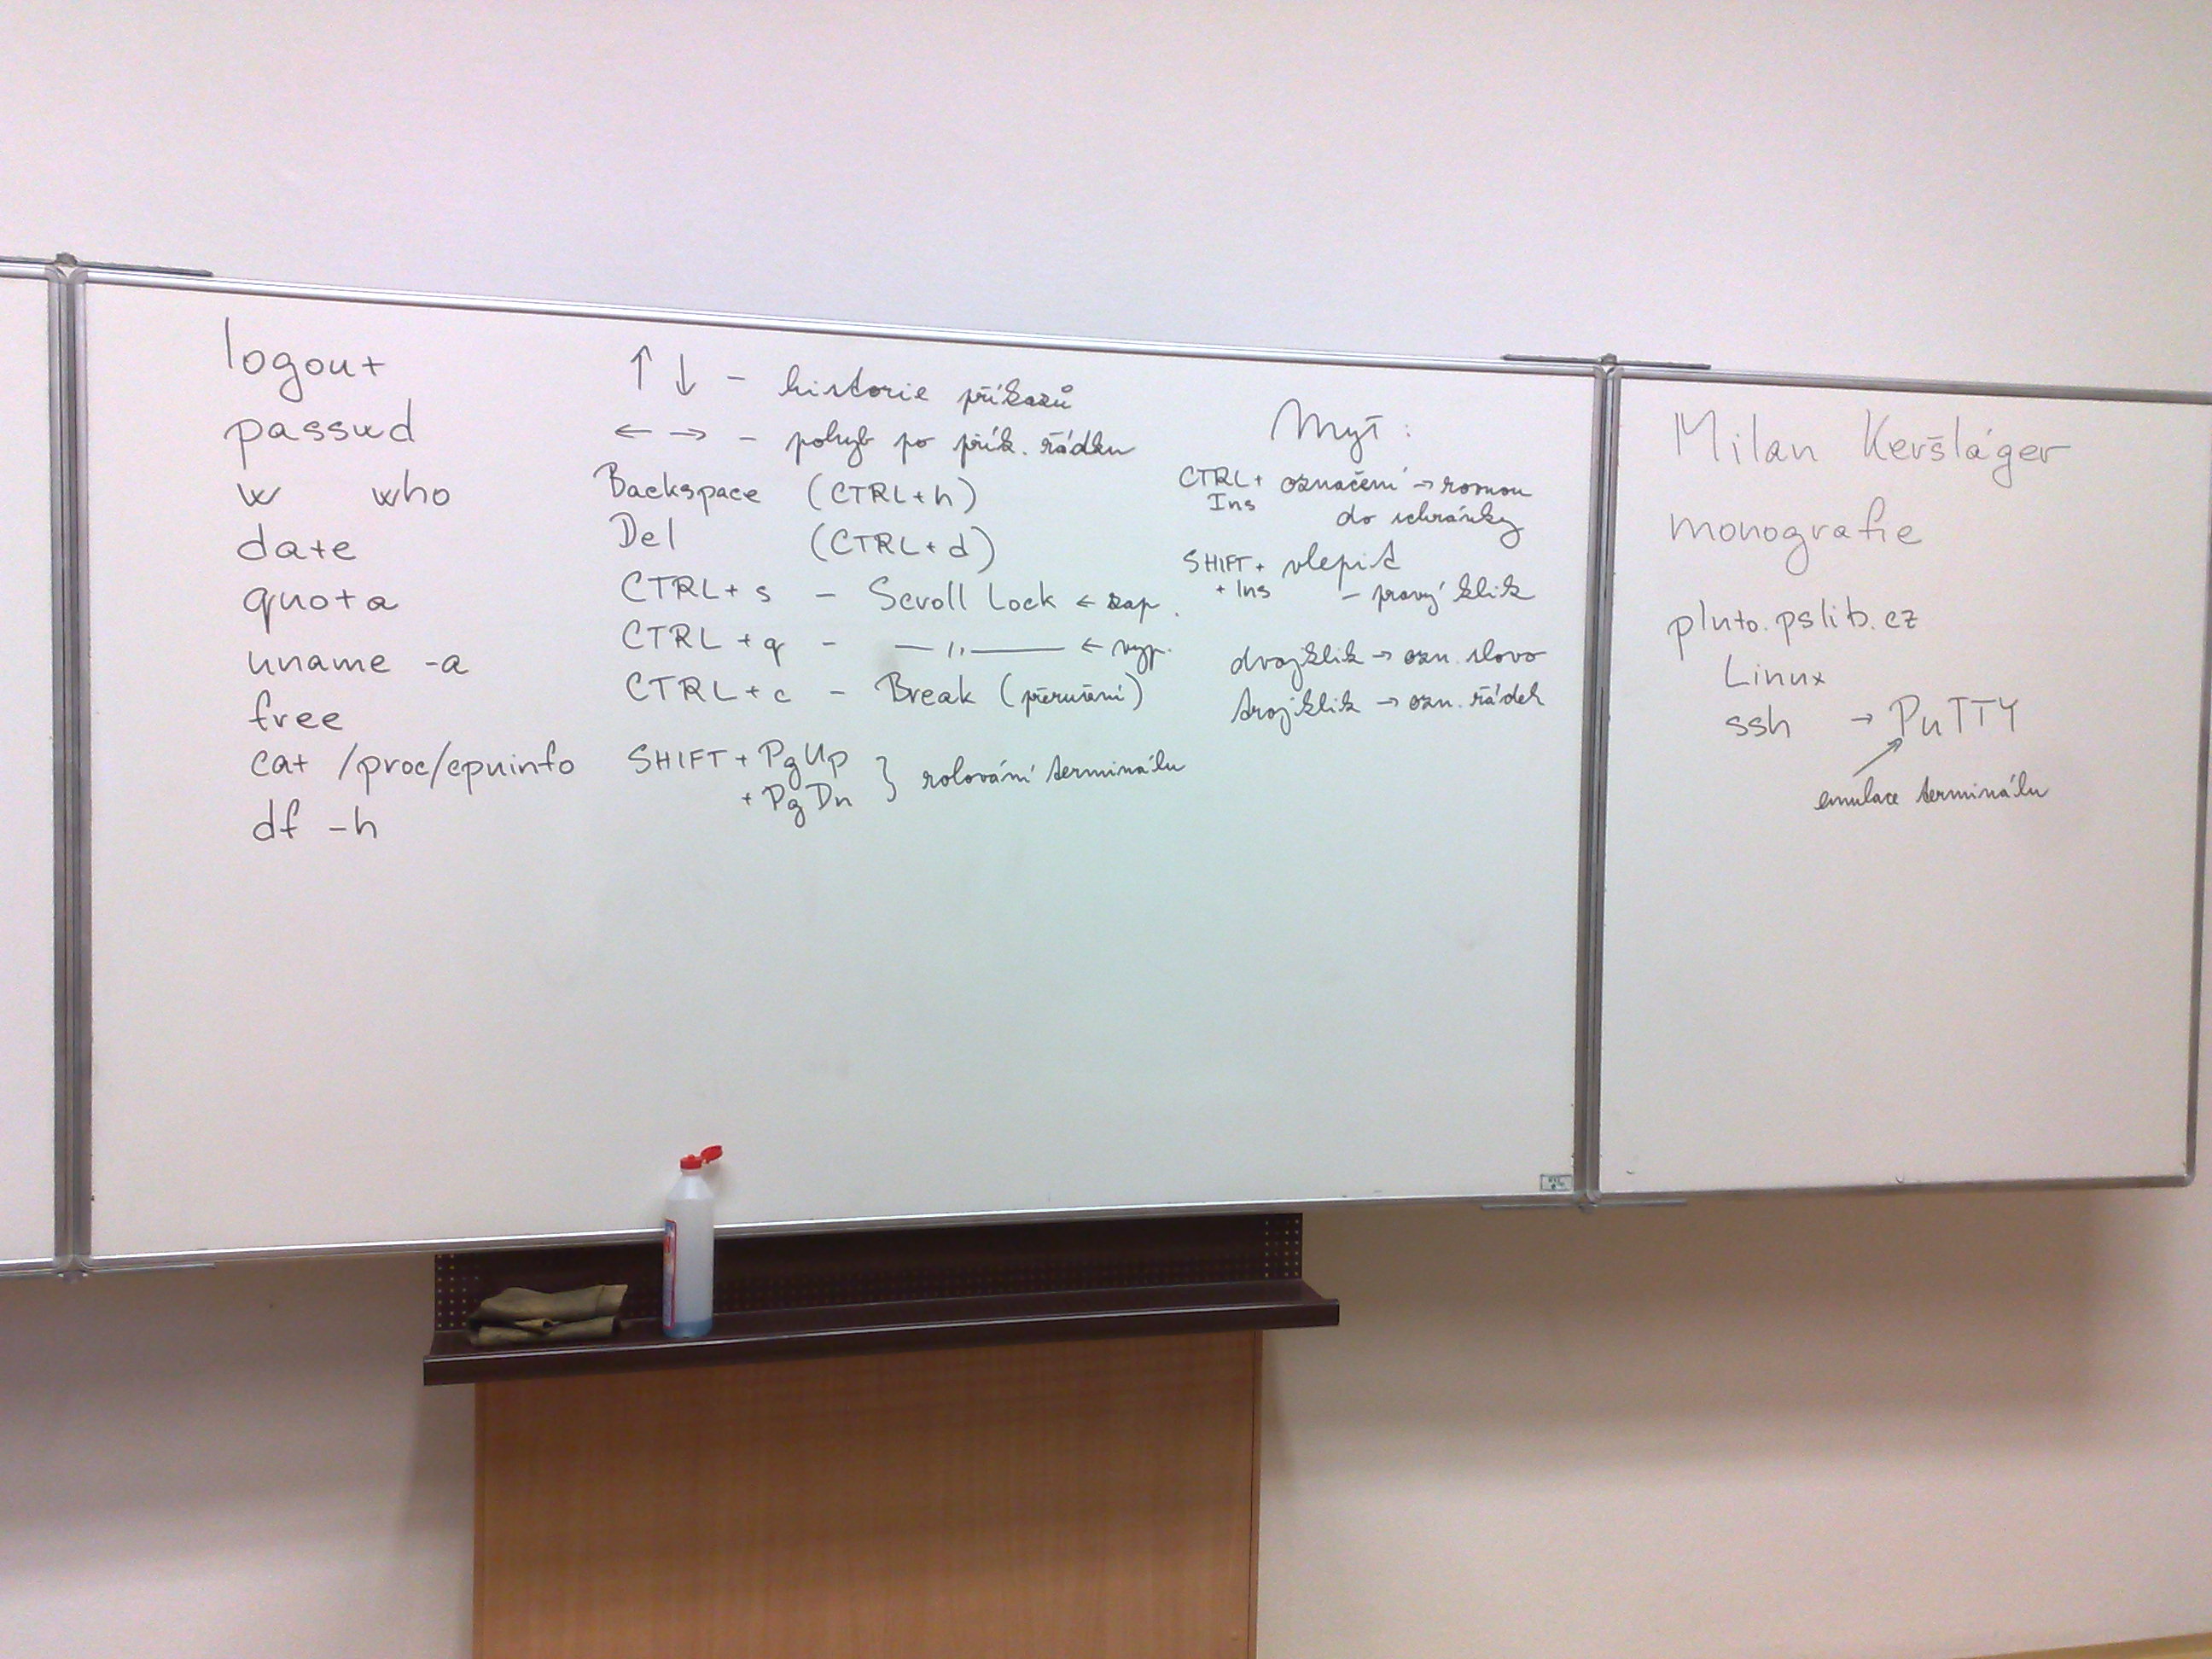 logout
passwd
w who
date
quota
uname -a
free
cat /proc/cpuinfo
df -h
↑ ↓ - historie příkazů
← → - pohyb po přík. řádku
Backspace (CTRL+h)
Del (CTRL+d)
CTRL+s - Scroll Lock ← zap.
CTRL+q - —〃— ← vyp.
CTRL+c - Break (přerušení)
SHIFT + PgUp
+ PgDn } rolování terminálu
Myš:
CTRL+ označení → rovnou
Ins do schránky
SHIFT+ vlepit
+ Ins - pravý klik
dvojklik → ozn. slovo
trojklik → ozn. řádek
Milan Keršláger
monografie
pluto.pslib.cz
Linux
ssh → PuTTY
emulace terminálu